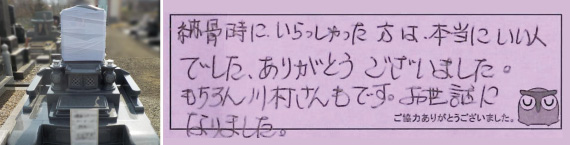 納骨時に、いらっしゃった方は、本当にいい人
でした、ありがとうございました。
もちろん川村さんもです。お世話に
なりました。
ご協力ありがとうございました。